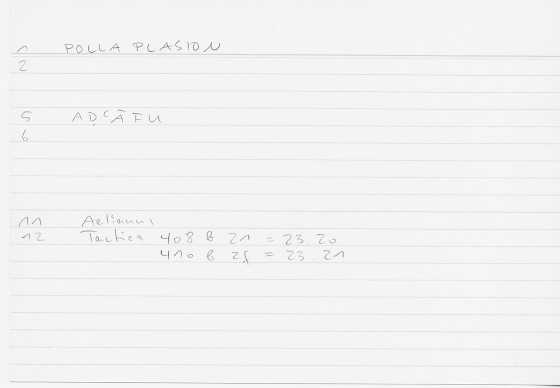 1 POLLA PLASION
2
5 ADCĀFU
6
11 Aelianus
12 Tactica 408 B 21 = 23.20
410 B 25 = 23.21